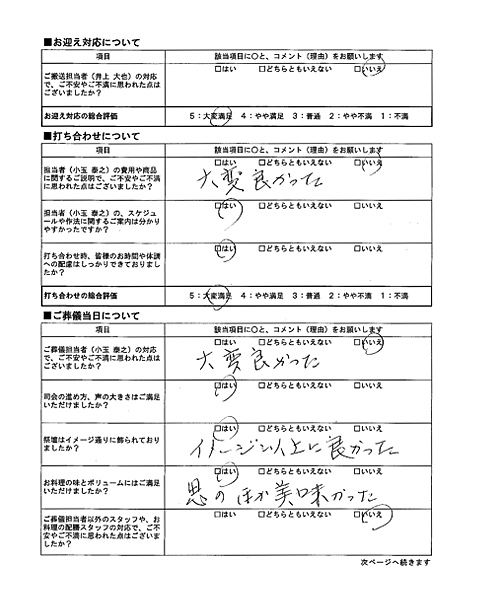 ■お迎え対応について
項目 該当項目に○と、コメント（理由）をお願いします
ご搬送担当者（井上 大也）の対応
で、ご不安やご不満に思われた点は
ございましたか？
□はい □どちらともいえない □いいえ
お迎え対応の総合評価 5：大変満足 4：やや満足 3：普通 2：やや不満 1：不満
■打ち合わせについて
項目 該当項目に○と、コメント（理由）をお願いします
担当者（小玉 泰之）の費用や商品
に関するご説明で、ご不安やご不満
に思われた点はございましたか？
□はい □どちらともいえない □いいえ
大変良かった
担当者（小玉 泰之）の、スケジュ
ールや作法に関するご案内は分かり
やすかったですか？
□はい □どちらともいえない □いいえ
打ち合わせ時、皆様のお時間や体調
への配慮はしっかりできておりまし
たか？
□はい □どちらともいえない □いいえ
打ち合わせの総合評価 5：大変満足 4：やや満足 3：普通 2：やや不満 1：不満
■ご葬儀当日について
項目 該当項目に○と、コメント（理由）をお願いします
ご葬儀担当者（小玉 泰之）の対応
で、ご不安やご不満に思われた点は
ございましたか？
□はい □どちらともいえない □いいえ
大変良かった
司会の進め方、声の大きさはご満足
いただけましたか？
□はい □どちらともいえない □いいえ
祭壇はイメージ通りに飾られており
ましたか？
□はい □どちらともいえない □いいえ
イメージ以上に良かった
お料理の味とボリュームにはご満足
いただけましたか？
□はい □どちらともいえない □いいえ
思のほか美味かった
ご葬儀担当者以外のスタッフや、お
料理の配膳スタッフの対応で、ご不
安やご不満に思われた点はございま
したか？
□はい □どちらともいえない □いいえ
次ページへ続きます